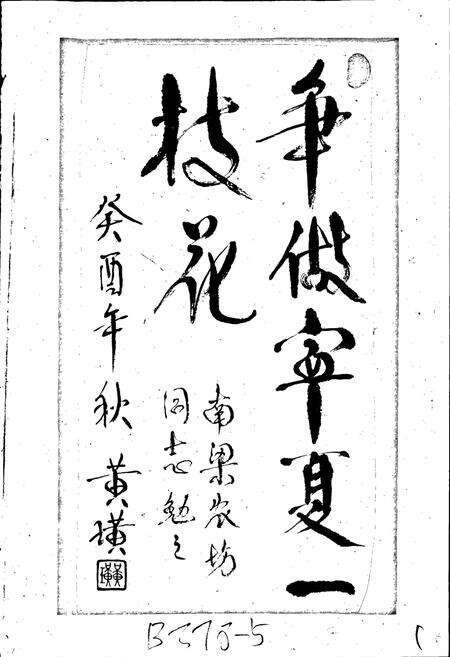 争做寧夏一
枝花
南梁农场
同志勉之
癸酉年秋 黄璜